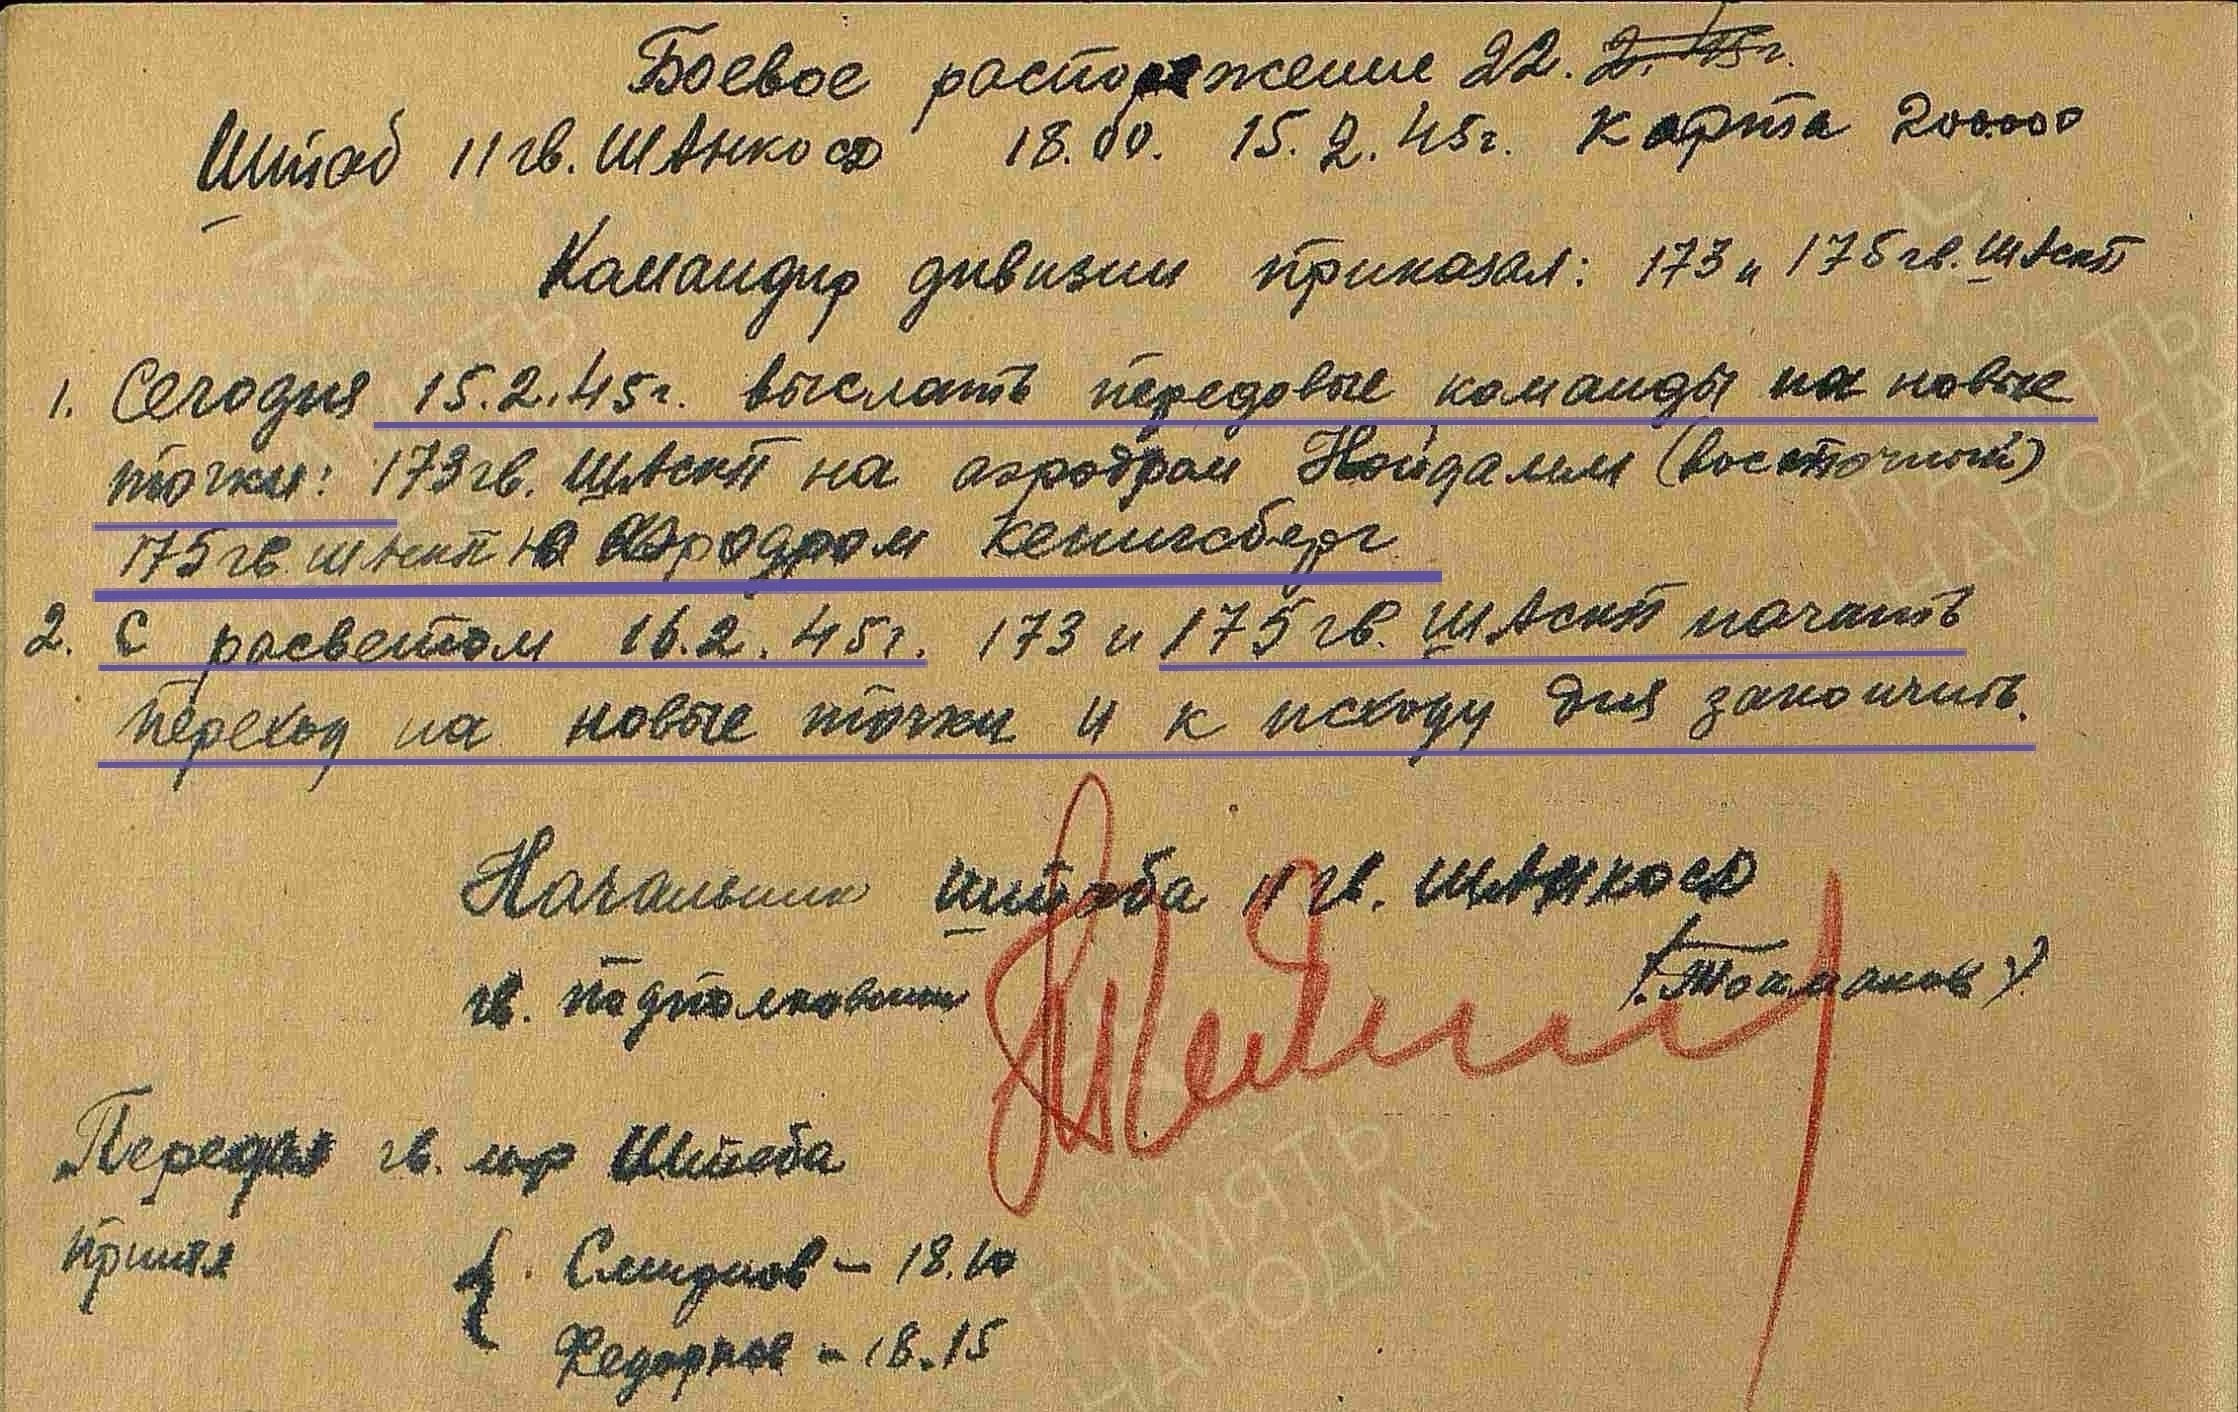 Боевое распоряжение 22.
Штаб 11 гв. ШАНКОСД 18.00. 15.2.45г. Карта 200000
Командир дивизии приказал: 173 и 175 гв. ШАскп
1. Сегодня 15.2.45г. выслать передовые команды на новые
точки: 173 гв. ШАскп на аэродром Нойдамм (восточный)
175 гв. ШАскп на аэродром Кенигсберг
2. С расветом 16.2.45г. 173 и 175 гв. ШАскп начать
переход на новые точки и к исходу дня закончить.
Начальник штаба 11 гв. ШАНКОСД
гв. подполковник (Токмаков)
Передал гв. м-р Штаба
принял
Смирнов - 18.10
- 18.15
ПАМЯТЬ
НАРОДА
ПАМЯТЬ
НАРОДА